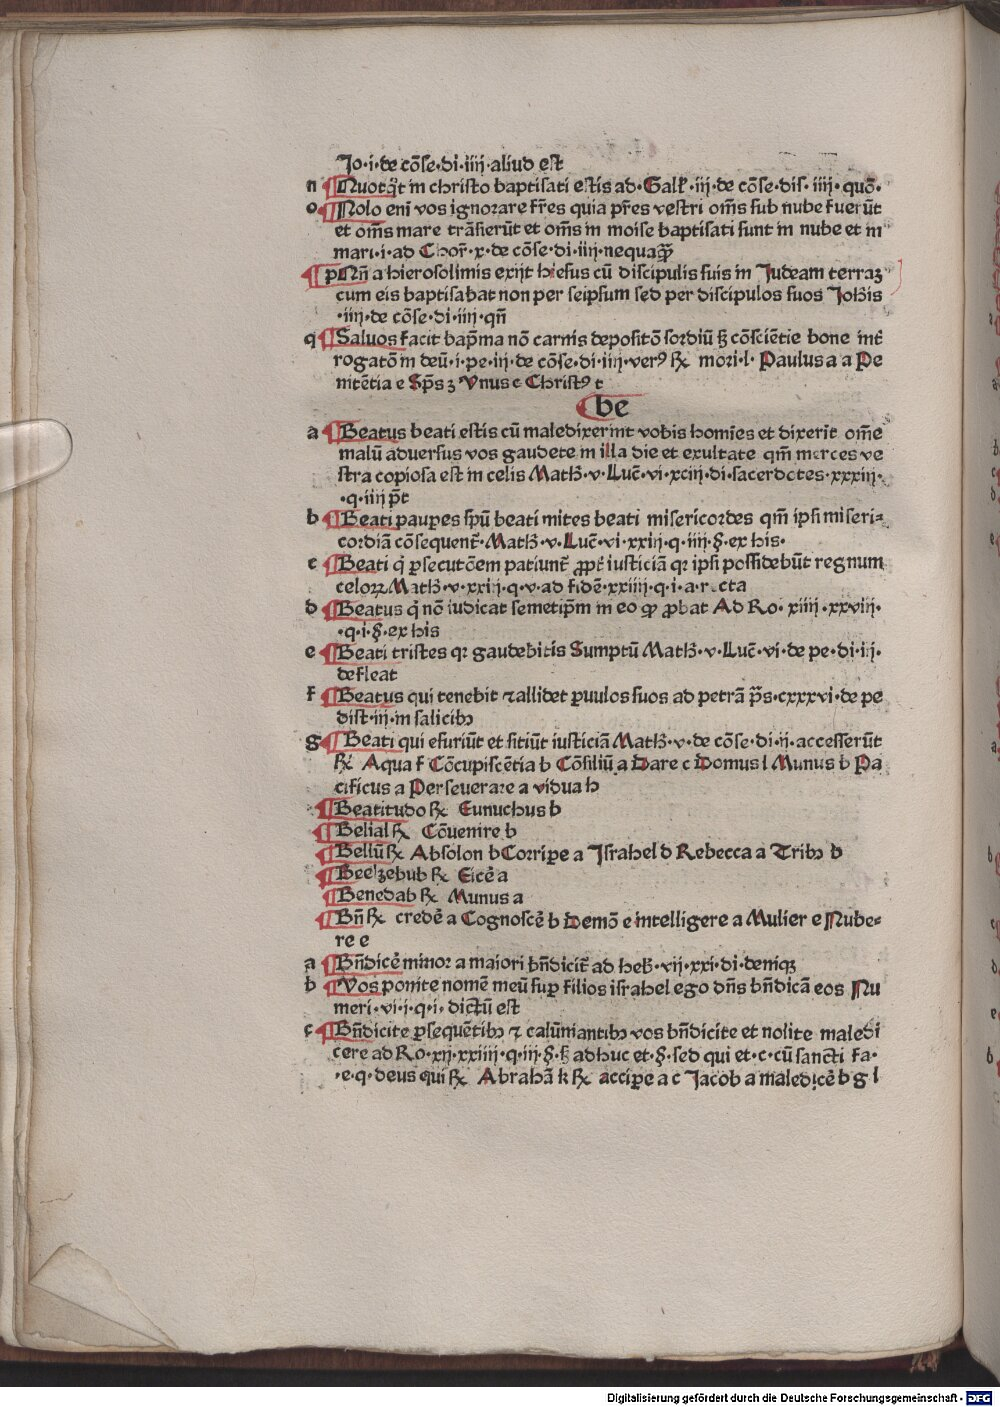 Jo·i·de cōse·di·iiij·aliud est
n ¶Quotqͥt in christo baptisati estis ad·Gall̕·iij·de cōse·dis·iiij·quō·
o ¶Nolo eni̅ vos ignorare fr̄es quia pr̄es vestri om̄s sub nube fuerūt
et om̄s mare trāsierūt et om̄s in moise baptisati sunt in nube et in
mari·i·ad Chor̄·x·de cōse·di·iiij·nequaꝙ̄
¶p Nn̄ a hierosolimis exijt hiesus cū discipulis suis in Judeam terraꝫ
cum eis baptisabat non per seipsum sed per discipulos suos Joh̄is
·iiij·de cōse·di·iiij·qn̄
q ¶Saluos facit bap̄ma nō carnis depositō sordiū ſꝫ cōsciētie bone int̄
rogatō in deū·i·pe·iij·de cōse·di·iiij·verꝰ ℞ mori·l·Paulus a a Pe
nitētia e Sp̄s ꝫ Vnus c Christꝰ t
¶be
a ¶Beatus beati estis cū maledixerint vobis homi̅es et dixerit om̄e
malū aduersus vos gaudete in illa die et exultate qm̄ merces ve
stra copiosa est in celis Math̄·v·Luc̄·vi·xciij·di·sacerdotes·xxxiij·
·q·iiij p̄t
b ¶Beati pauꝑes sp̄u beati mites beati misericordes qm̄ ipsi miseri⸗
cordiā cōsequent̄·Math̄·v·Luc̄·vi·xxiij·q·iiij·§·ex his·
c ¶Beati qͥ ꝑsecutōem patiunt̄ ꝓpt̄ iusticiā qꝛ ipsi possidebūt regnum
celoꝝ Math̄·v·xxiij·q·v·ad fidē·xxiiij·q·i·a·recta
d ¶Beatus qͥ nō iudicat semetip̄m in eo ꝙ ꝓbat Ad Ro·xiiij·xxviij·
·q·i·§·ex his
e ¶Beati tristes qꝛ gaudebitis Sumptū Math̄·v·Luc̄·vi·de pe·di·iij·
defleat
f ¶Beatus qui tenebit ⁊ allidet ꝑuulos suos ad petrā p̄s·cxxxvi·de pe
dist·iij·in salicibꝫ
g ¶Beati qui esuriūt et sitiūt iusticiā Math̄·v·de cōse·di·ij·accesserūt
℞ Aqua f Cōcupiscētia b Cōsiliū a Dare c Domus l Munus b Pa
cificus a Perseuerare a vidua h
¶Beatitudo ℞ Eunuchus b
¶Belial ℞ Cōuenire b
¶Bellū ℞ Absolon b Corriꝑe a Israhel d Rebecca a Tribꝫ d
¶Beelzebub ℞ Eicē a
¶Benedab ℞ Munus a
¶Bn̄ ℞ credē a Cognoscē b Demō e intelligere a Mulier e Nube⸗
re e
a ¶Bn̄dicē minor a maiori bn̄dicit̄ ad heb̄·vij·xxi·di·deniqꝫ
b ¶Vos ponite nomē meū suꝑ filios israhel ego dn̄s bn̄dicā eos Nu
meri·vi·i·q·i·dictū est
c ¶Bn̄dicite ꝑsequētibꝫ ⁊ calūniantibꝫ vos bn̄dicite et nolite maledi
cere ad Ro·xij·xxiiij·q·iij·§·ſꝫ adhuc et·§·sed qui et·c·cū sancti fa·
·e·q·deus qui ℞ Abrahā k ℞ acciꝑe a c Jacob a maledicē b g l
Digitalisierung gefördert durch die Deutsche Forschungsgemeinschaft - DFG